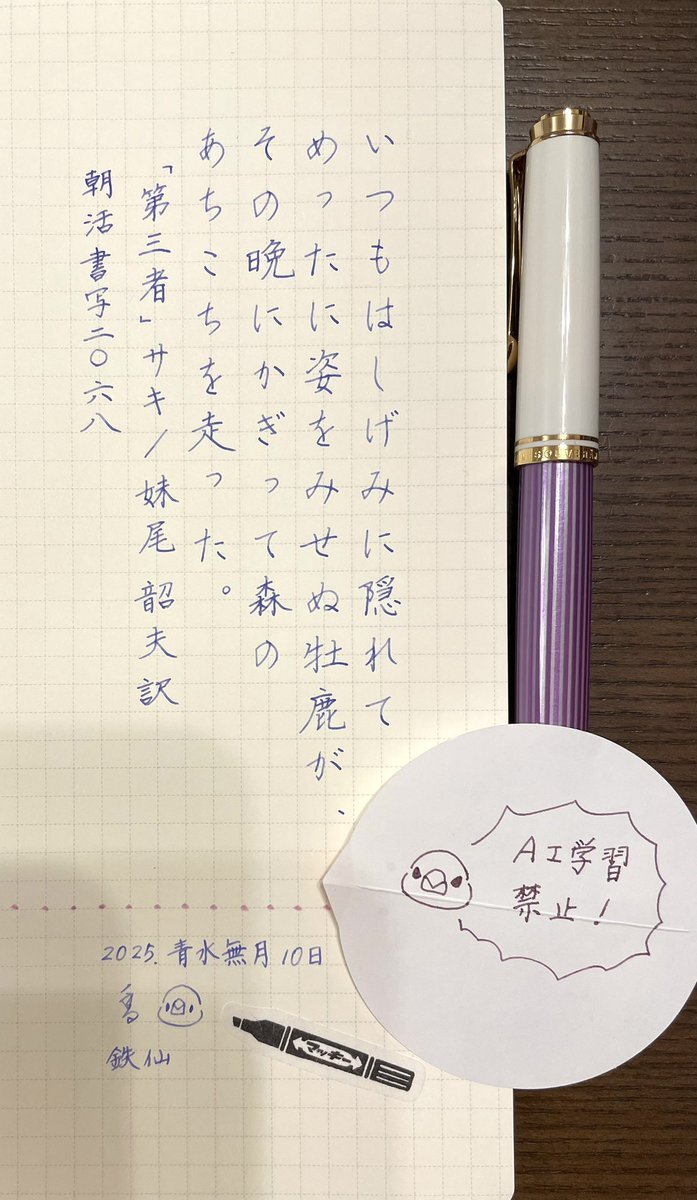 いつもはしげみに隠れて
めったに姿をみせぬ牡鹿が、
その晩にかぎって森の
あちこちを走った。
「第三者」サキ/妹尾韶夫訳
朝活書写二〇六八
2025.青水無月10日
鉄仙
マッキー
AI学習
禁止!